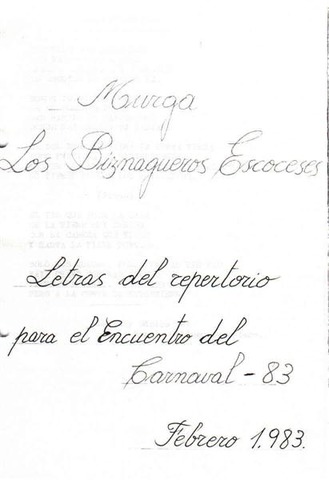 Murga
Los Biznagueros Escoceses
Letras del repertorio
para el Encuentro del
Carnaval - 83
Febrero 1.983.